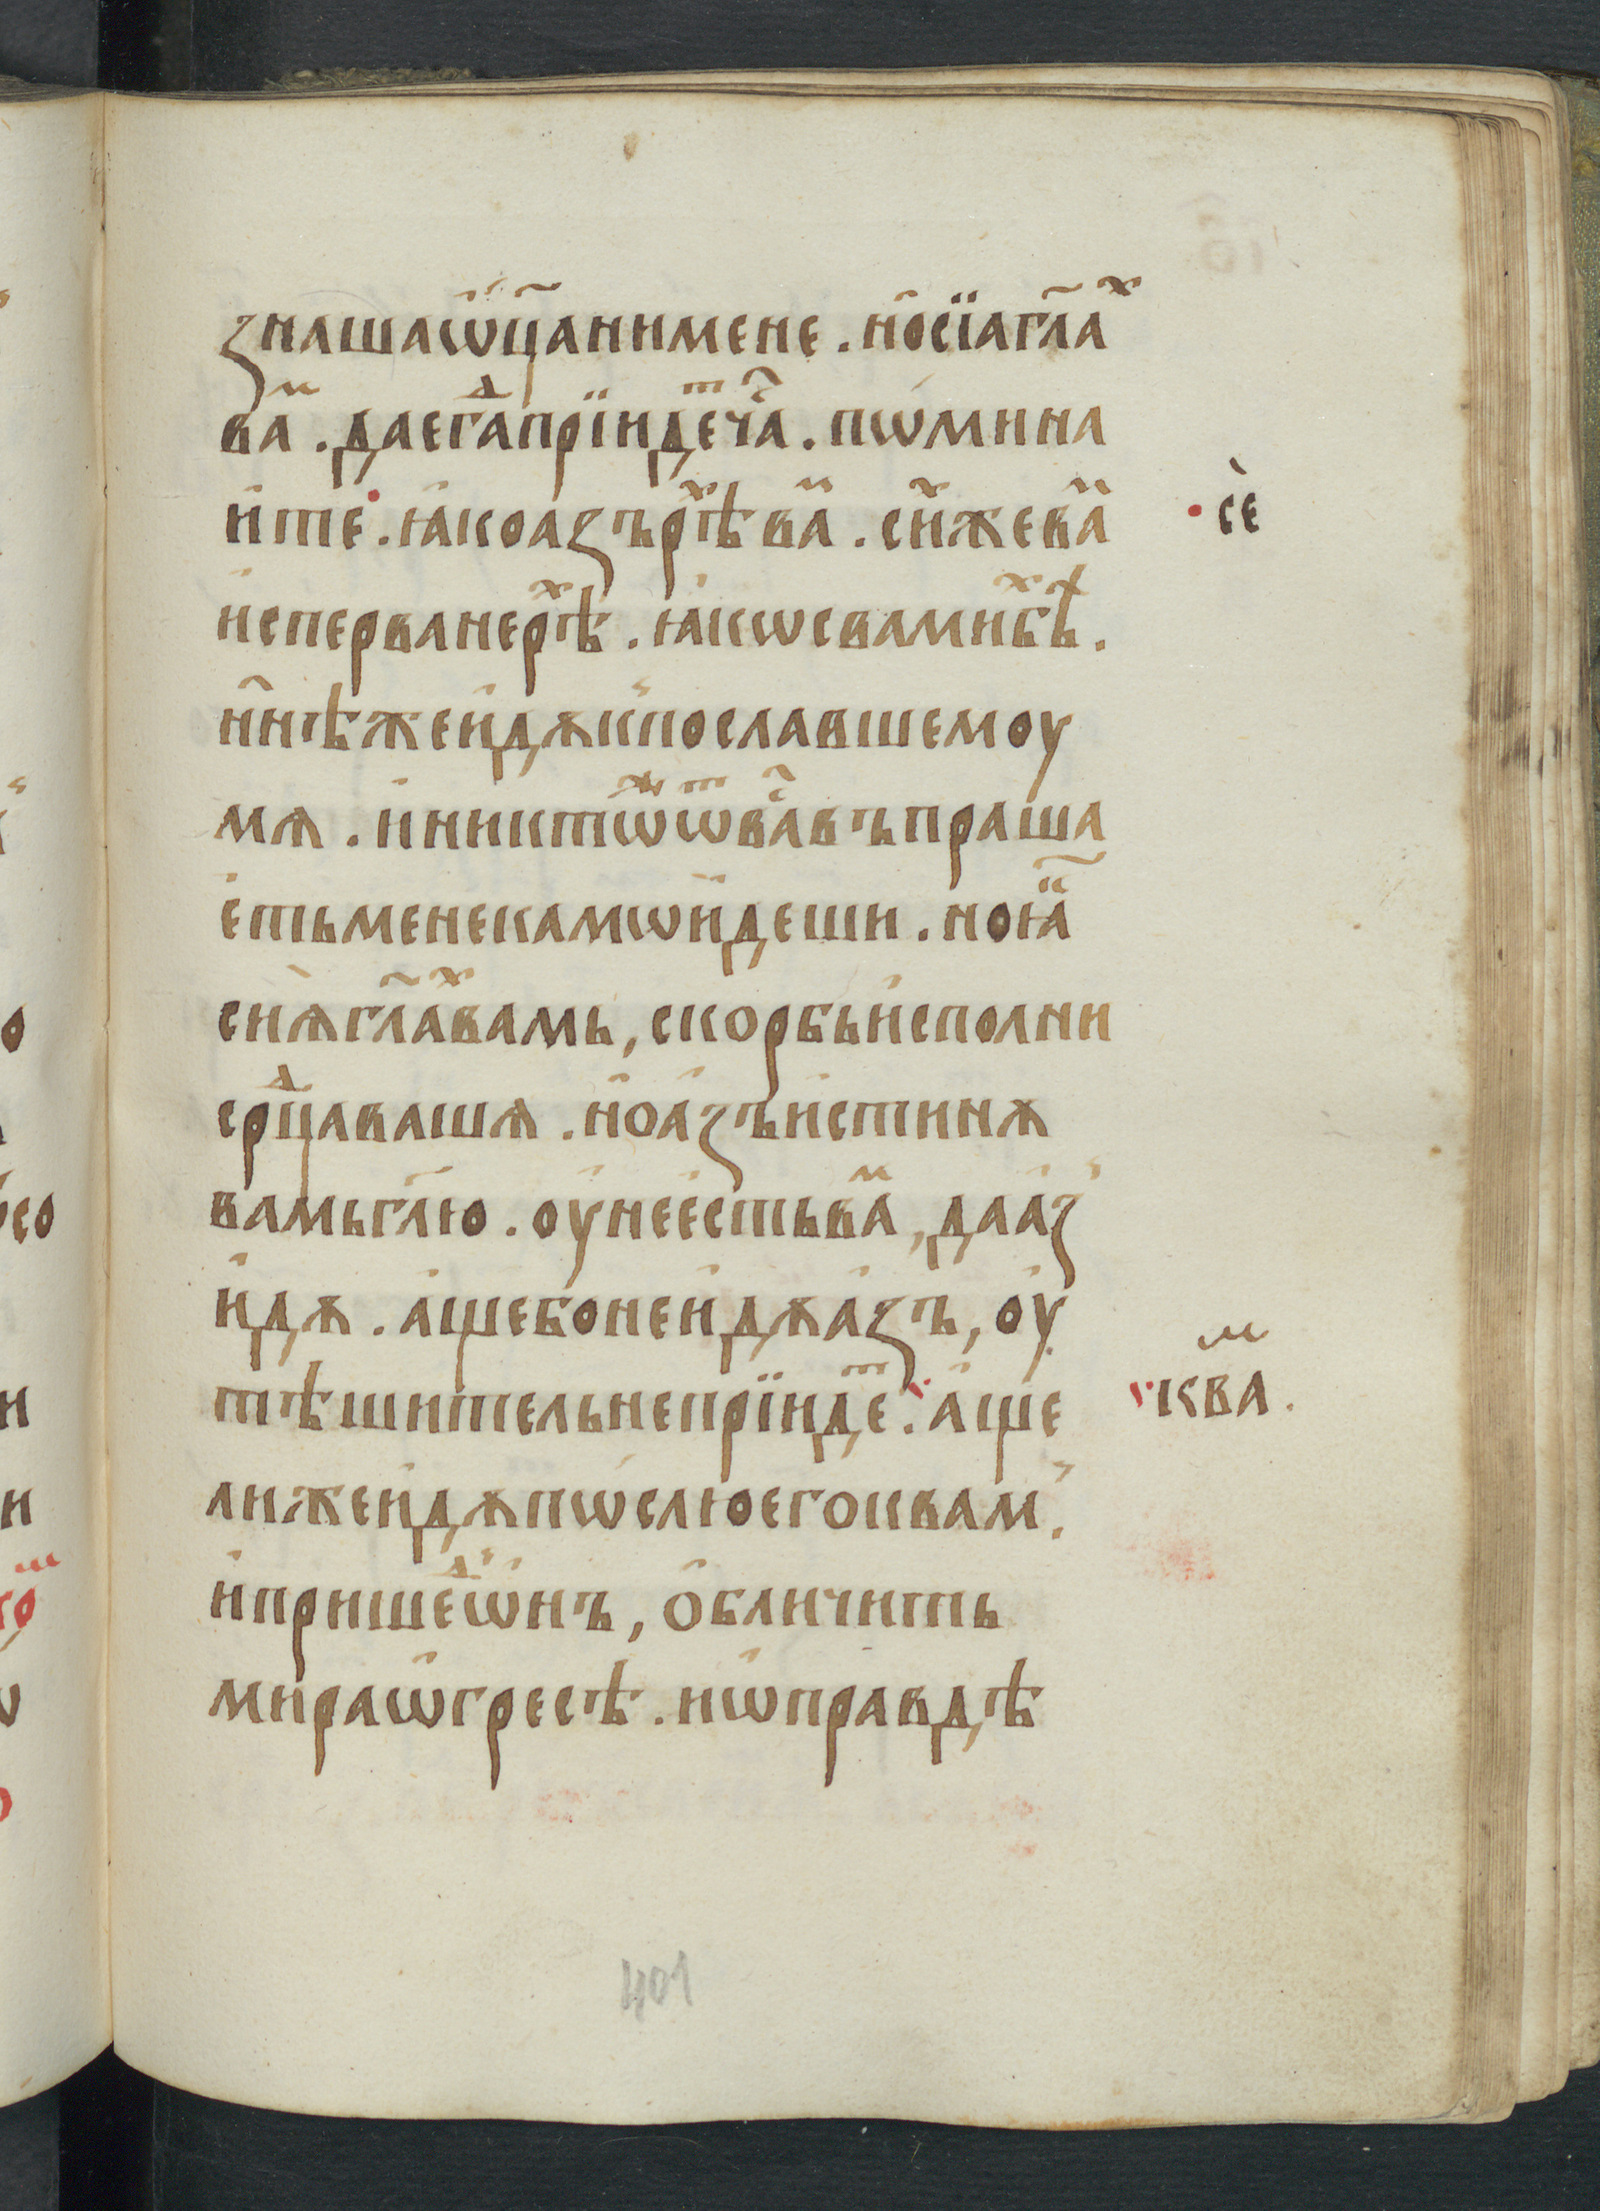 знашаѡ҆ц҃анимене. но҆сїѧгл҃аⷯ
ваⷨ. даегⷣапрїидеⷮчⷭ҇а. пѡминa
и҆те. ꙗ҆коазърѣⷯваⷨ. си҆жеваⷨ
·сѐ
и҆спрьванерѣⷯ. ꙗ҆кѡсвамибѣⷯ.
нн҃ѣжеи҆дѫкпославшемоу
мѧ. и҆никтѡⷤѿваⷭ҇въпраша
е҆тьменекамѡи҆деши. ноꙗ҆ⷦ҇
сиѧ҆гл҃аⷯвамь, скорбьи҆сполни
срⷣцавашѧ. но҆а҆зъи҆стинѫ
вамьгл҃ю. оу҆нее҆стьваⷨ, даа҆з
и҆дѫ. а҆щебонеи҆дѫа҆зъ, оу҆
тѣшительнепрїидеⷮ. а҆ще
кваⷨ.
лижеи҆дѫпѡслюегоквам.
и҆пришеⷣѡ҆нъ, о҆бличить
мираѡ҆гресѣ. иѡ҆правдѣ
401